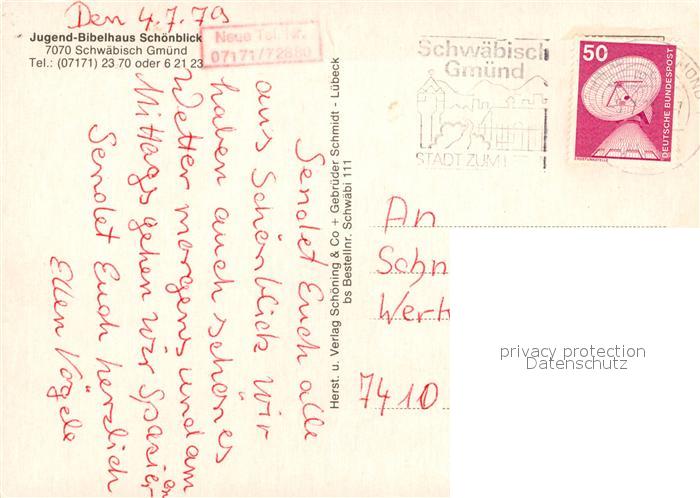 Den 4.7.79
Jugend-Bibelhaus Schönblick
7070 Schwäbisch Gmünd
Tel.: (07171) 23 70 oder 6 21 23
Neue Tel. Nr.
07171/72880
Sendet Euch alle
aus Schönblick wir
haben auch schönes
Wetter morgens und am
Mittags gehen wir Spazieren
Sendet Euch herzlich
Ellen Vögele
Herst. u. Verlag Schöning & Co + Gebrüder Schmidt - Lübeck
bs Bestellnr. Schwäbi 111
Schwäbisch
Gmünd
STADT ZUM
50
DEUTSCHE BUNDESPOST
An
Schn
Werk
7410
privacy protection
Datenschutz